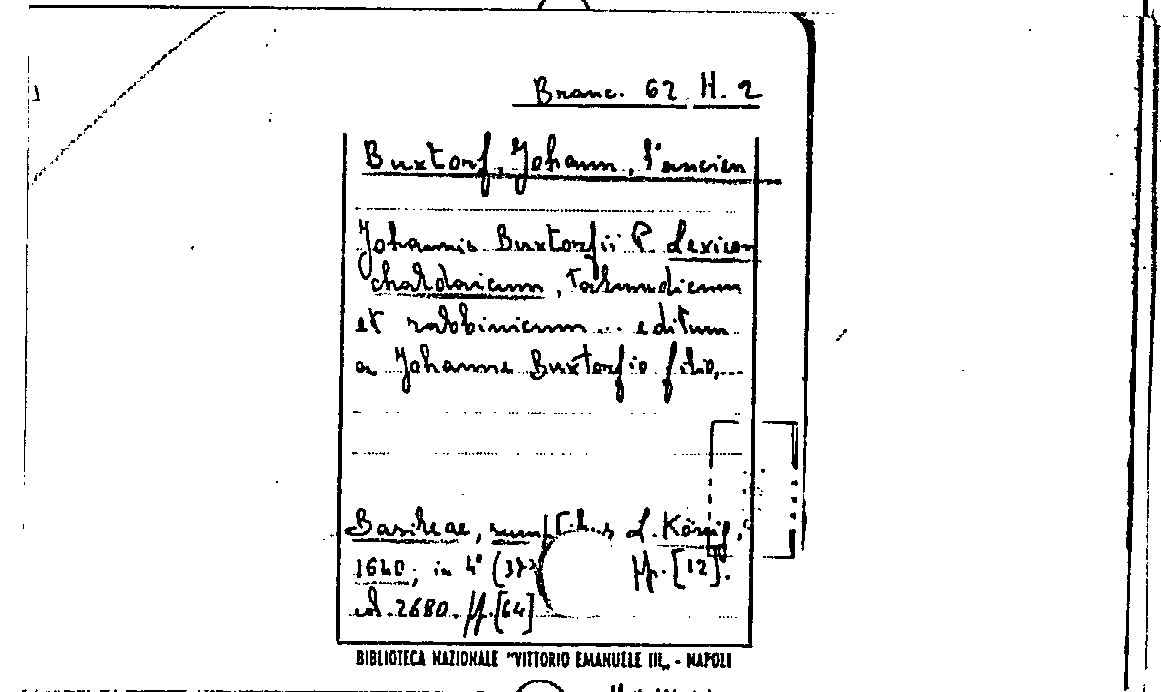 Branc. 62 H. 2
Buxtorf, Johann, l'ancien
Johannis Buxtorfii P. Lexicon
chaldaicum, Talmudicum
et rabbinicum ... editum
a Johanne Buxtorfio filio,...
Basileae, L. König,
1640, in 4° ff. [12].
col. 2680. ff. [64]
BIBLIOTECA NAZIONALE "VITTORIO EMANUELE III„ - NAPOLI